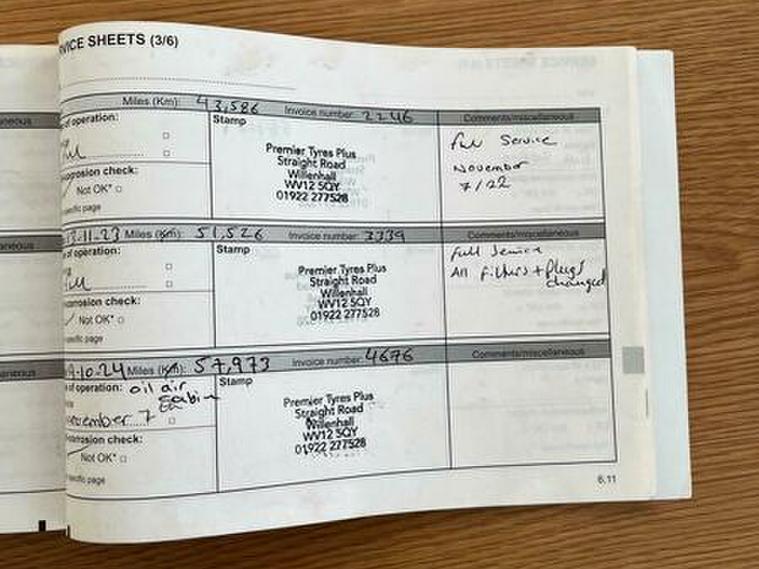 RVICE SHEETS (3/6)
Miles (Km): 43,586 Invoice number: 2246
aneous
of operation:
Stamp
Comments/miscellaneous
Full Service
November
7/22
Premier Tyres Plus
Straight Road
Willenhall
WV12 5QY
01922 277528
orrosion check:
Not OK*
specific page
13-11-23 Miles (Km): 51,526 Invoice number: 3339
aneous
of operation:
Stamp
Comments/miscellaneous
Full Service
All filters + Plugs
changed
Premier Tyres Plus
Straight Road
Willenhall
WV12 5QY
01922 277528
orrosion check:
Not OK*
specific page
9-10-24 Miles (Km): 57,973 Invoice number: 4676
aneous
of operation: oil air
cabin
November 7
Stamp
Comments/miscellaneous
Premier Tyres Plus
Straight Road
Willenhall
WV12 5QY
01922 277528
orrosion check:
Not OK*
specific page
6.11